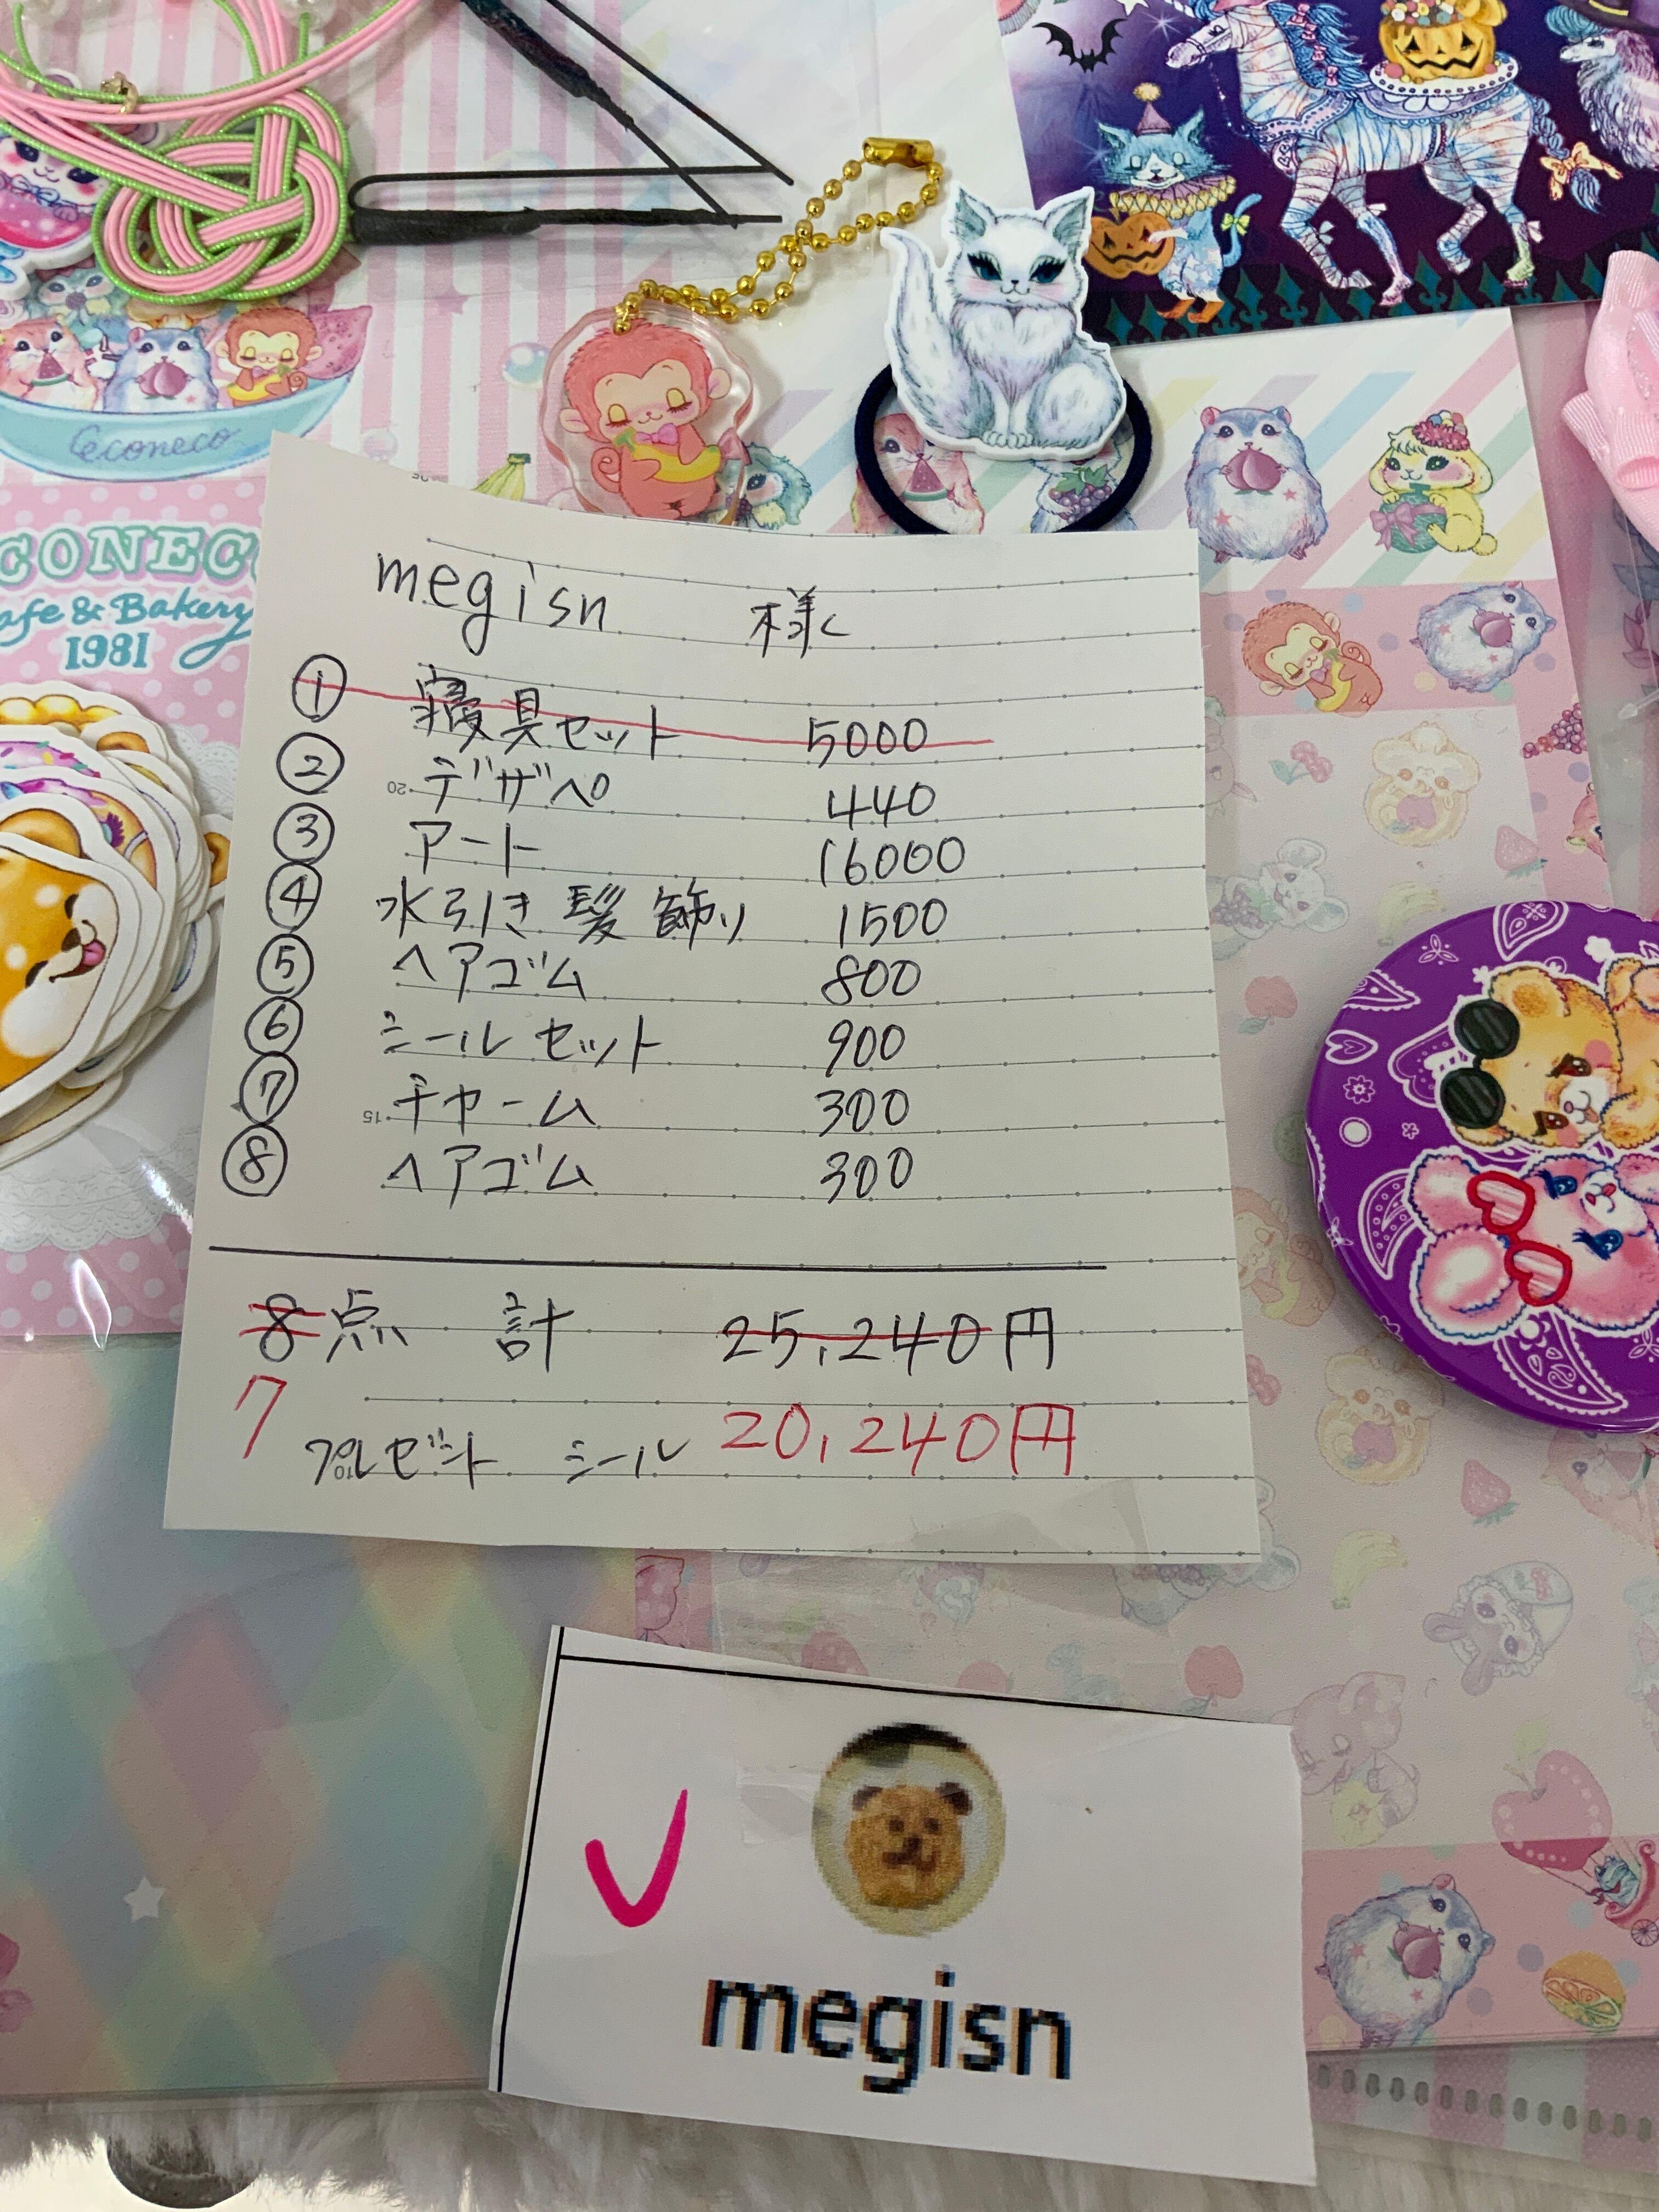 econeco
CONEC
afe & Bakery
1981
megisn 様
① 寝具セット 5000
② デザペ 440
③ アート 16000
④ 水引き髪飾り 1500
⑤ ヘアゴム 800
⑥ シールセット 900
⑦ チャーム 300
⑧ ヘアゴム 300
8点 計 25,240円
7 20,240円
プレゼント シール
megisn